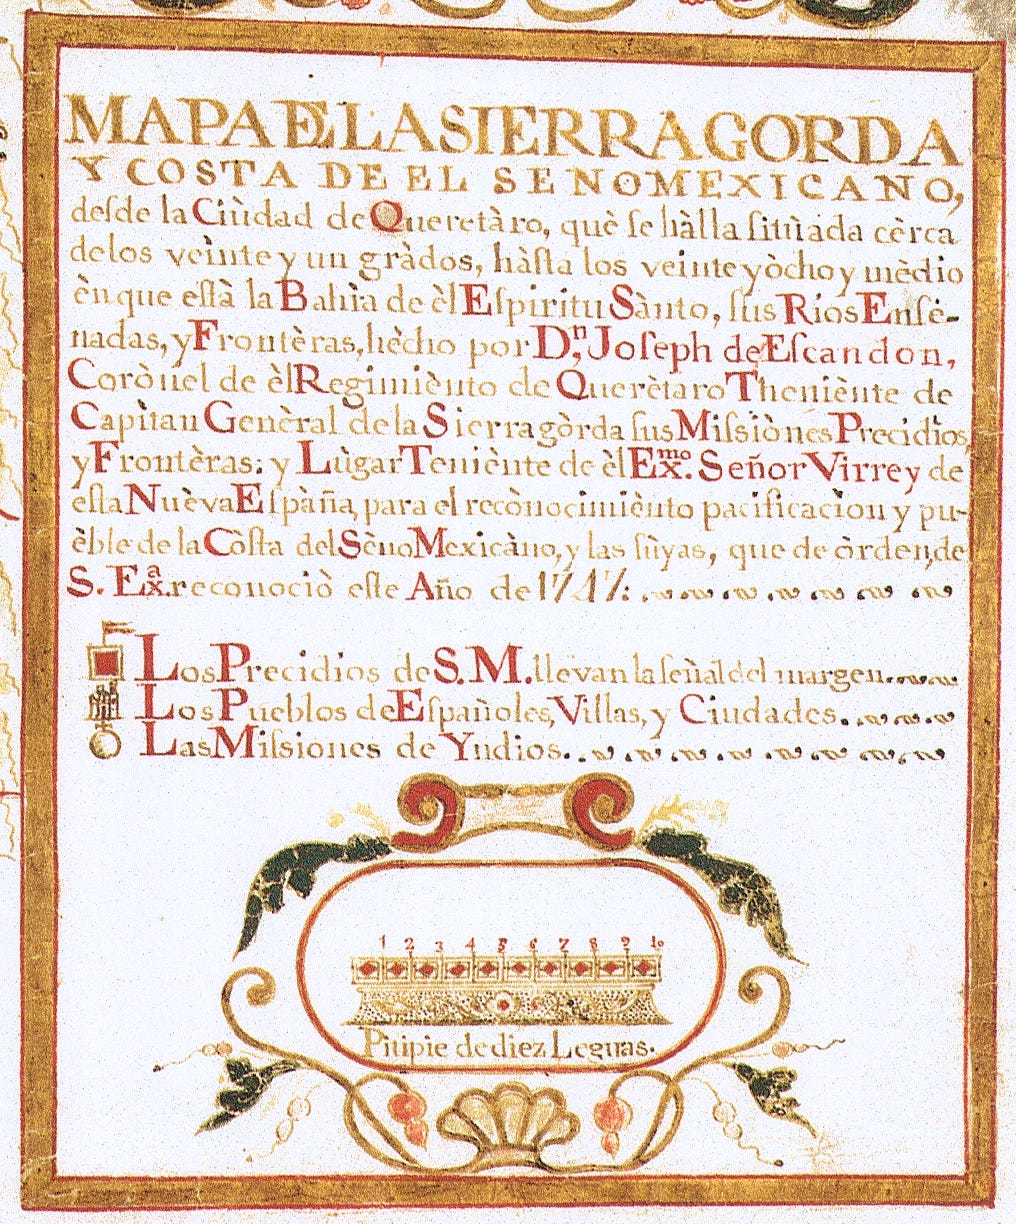 MAPA DE LA SIERRA GORDA
Y COSTA DE EL SENO MEXICANO,
desde la Ciùdad de Queretàro, què se hàlla sitùada cèrca
de los veinte y un gràdos, hàsta los veinte y òcho y mèdio
èn que està la Bahìa de èl Espiritu Sànto, sus Rios Ensè-
nadas, y Frontèras, hècho por Dn. Joseph de Escandon,
Corònel de èl Regimiènto de Querètaro Theniènte de
Capìtan Genèral de la Sierragòrda sus Missiònes Precidìos,
y Frontèras; y Lùgar Teniènte de èl Exmo. Señor Virrey de
esta Nuèva Espàña, para el recònocimiènto pacificaciòn y pu-
èble de la Còsta del Sèno Mexicàno, y las sùyas, que de òrden, de
S. Exa. reconociò este Año de 1747:
Los Precidios de S. M. llevan la señal del margen.
Los Pueblos de Españoles, Villas, y Ciudades.
Las Missiones de Yndios.
1 2 3 4 5 6 7 8 9 10
Pitipie de diez Leguas.